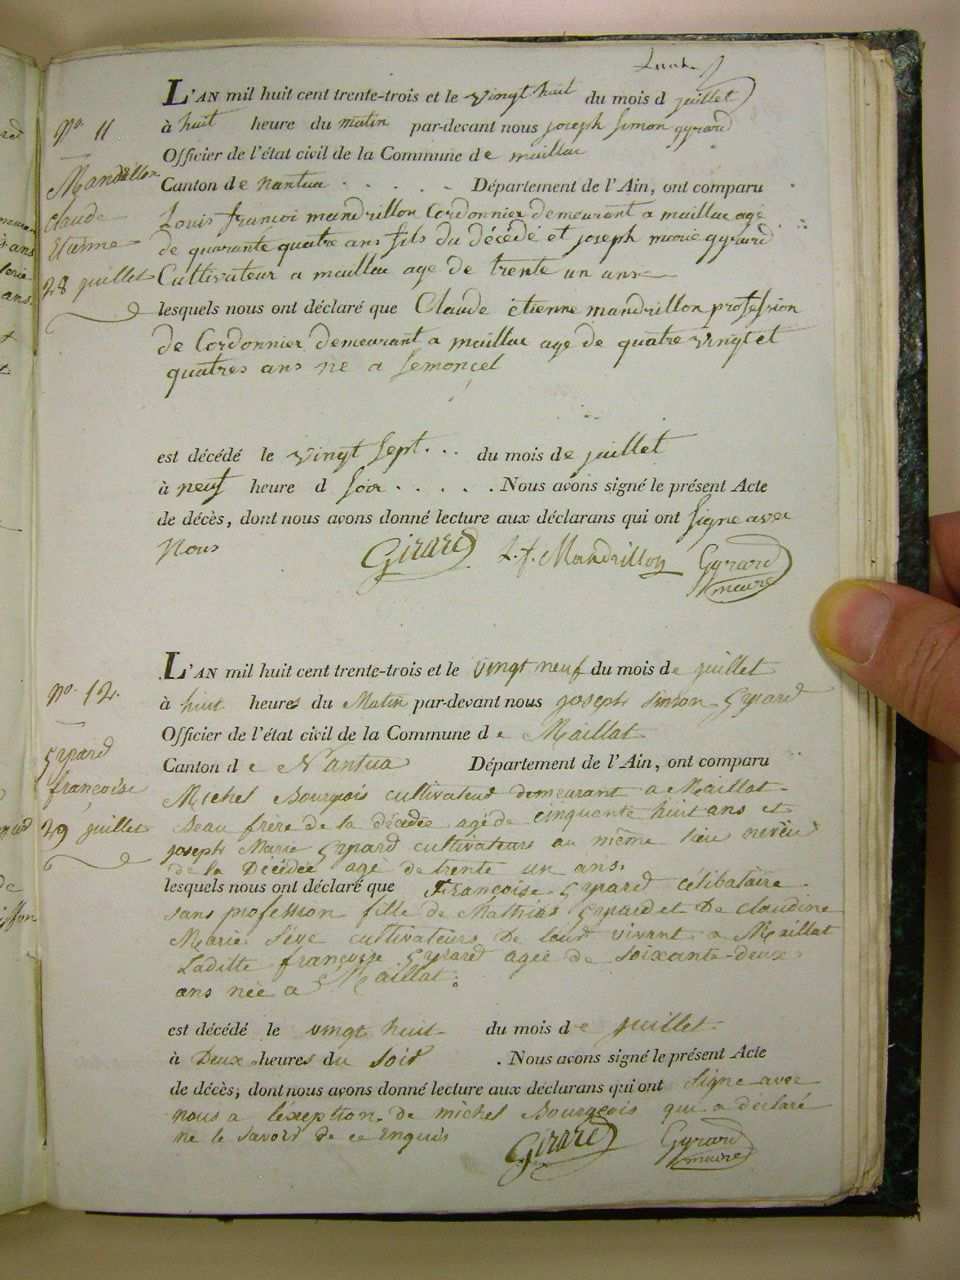 L'AN mil huit cent trente-trois et le vingt huit du mois d juillet
No. 11
à huit heure du matin par-devant nous joseph simon gyrard
Officier de l'état civil de la Commune de maillac
Mandrillon
Claude
Etienne
28 juillet
Canton de nantua . . . . . Département de l'Ain, ont comparu
Louis françoi mandrillon Cordonnier demeurant a maillac agé
de quarante quatre ans fils du décédé et joseph marie gyrard
Cultivateur a maillac age de trente un ans
lesquels nous ont déclaré que Claude étienne mandrillon profession
de Cordonnier demeurant a maillac age de quatre vingt et
quatres ans né a semoncel
est décédé le vingt sept . . . du mois de juillet
à neuf heure d soir . . . . . Nous avons signé le présent Acte
de décès, dont nous avons donné lecture aux déclarans qui ont signe avec
nous
Girard L. f. Mandrillon Gyrard
maire
L'AN mil huit cent trente-trois et le vingt neuf du mois de juillet
No. 12.
à huit heures du Matin par-devant nous joseph simon gyrard
Officier de l'état civil de la Commune de Maillat
gyrard
françoise
29 juillet
Canton de Nantua Département de l'Ain, ont comparu
Michel Bourgeois cultivateur demeurant a Maillat
Beau frère de la décédée agé de cinquante huit ans et
joseph Marie gyrard cultivateurs au même lieu neveu
de la Décédée agé de trente un ans.
lesquels nous ont déclaré que françoise gyrard célibataire
sans profession fille de Mathias gyrard et De claudine
Marie Sève cultivateurs De leur vivant a Maillat
Laditte françoise gyrard agée de soixante-deux
ans née a Maillat.
est décédé le vingt huit du mois de juillet
à Deux heures du soir . Nous avons signé le présent Acte
de décès, dont nous avons donné lecture aux déclarans qui ont signe avec
nous a l'exeption de michel Bourgeois qui a déclaré
ne le savoir de ce enquis
Girard Gyrard
maire